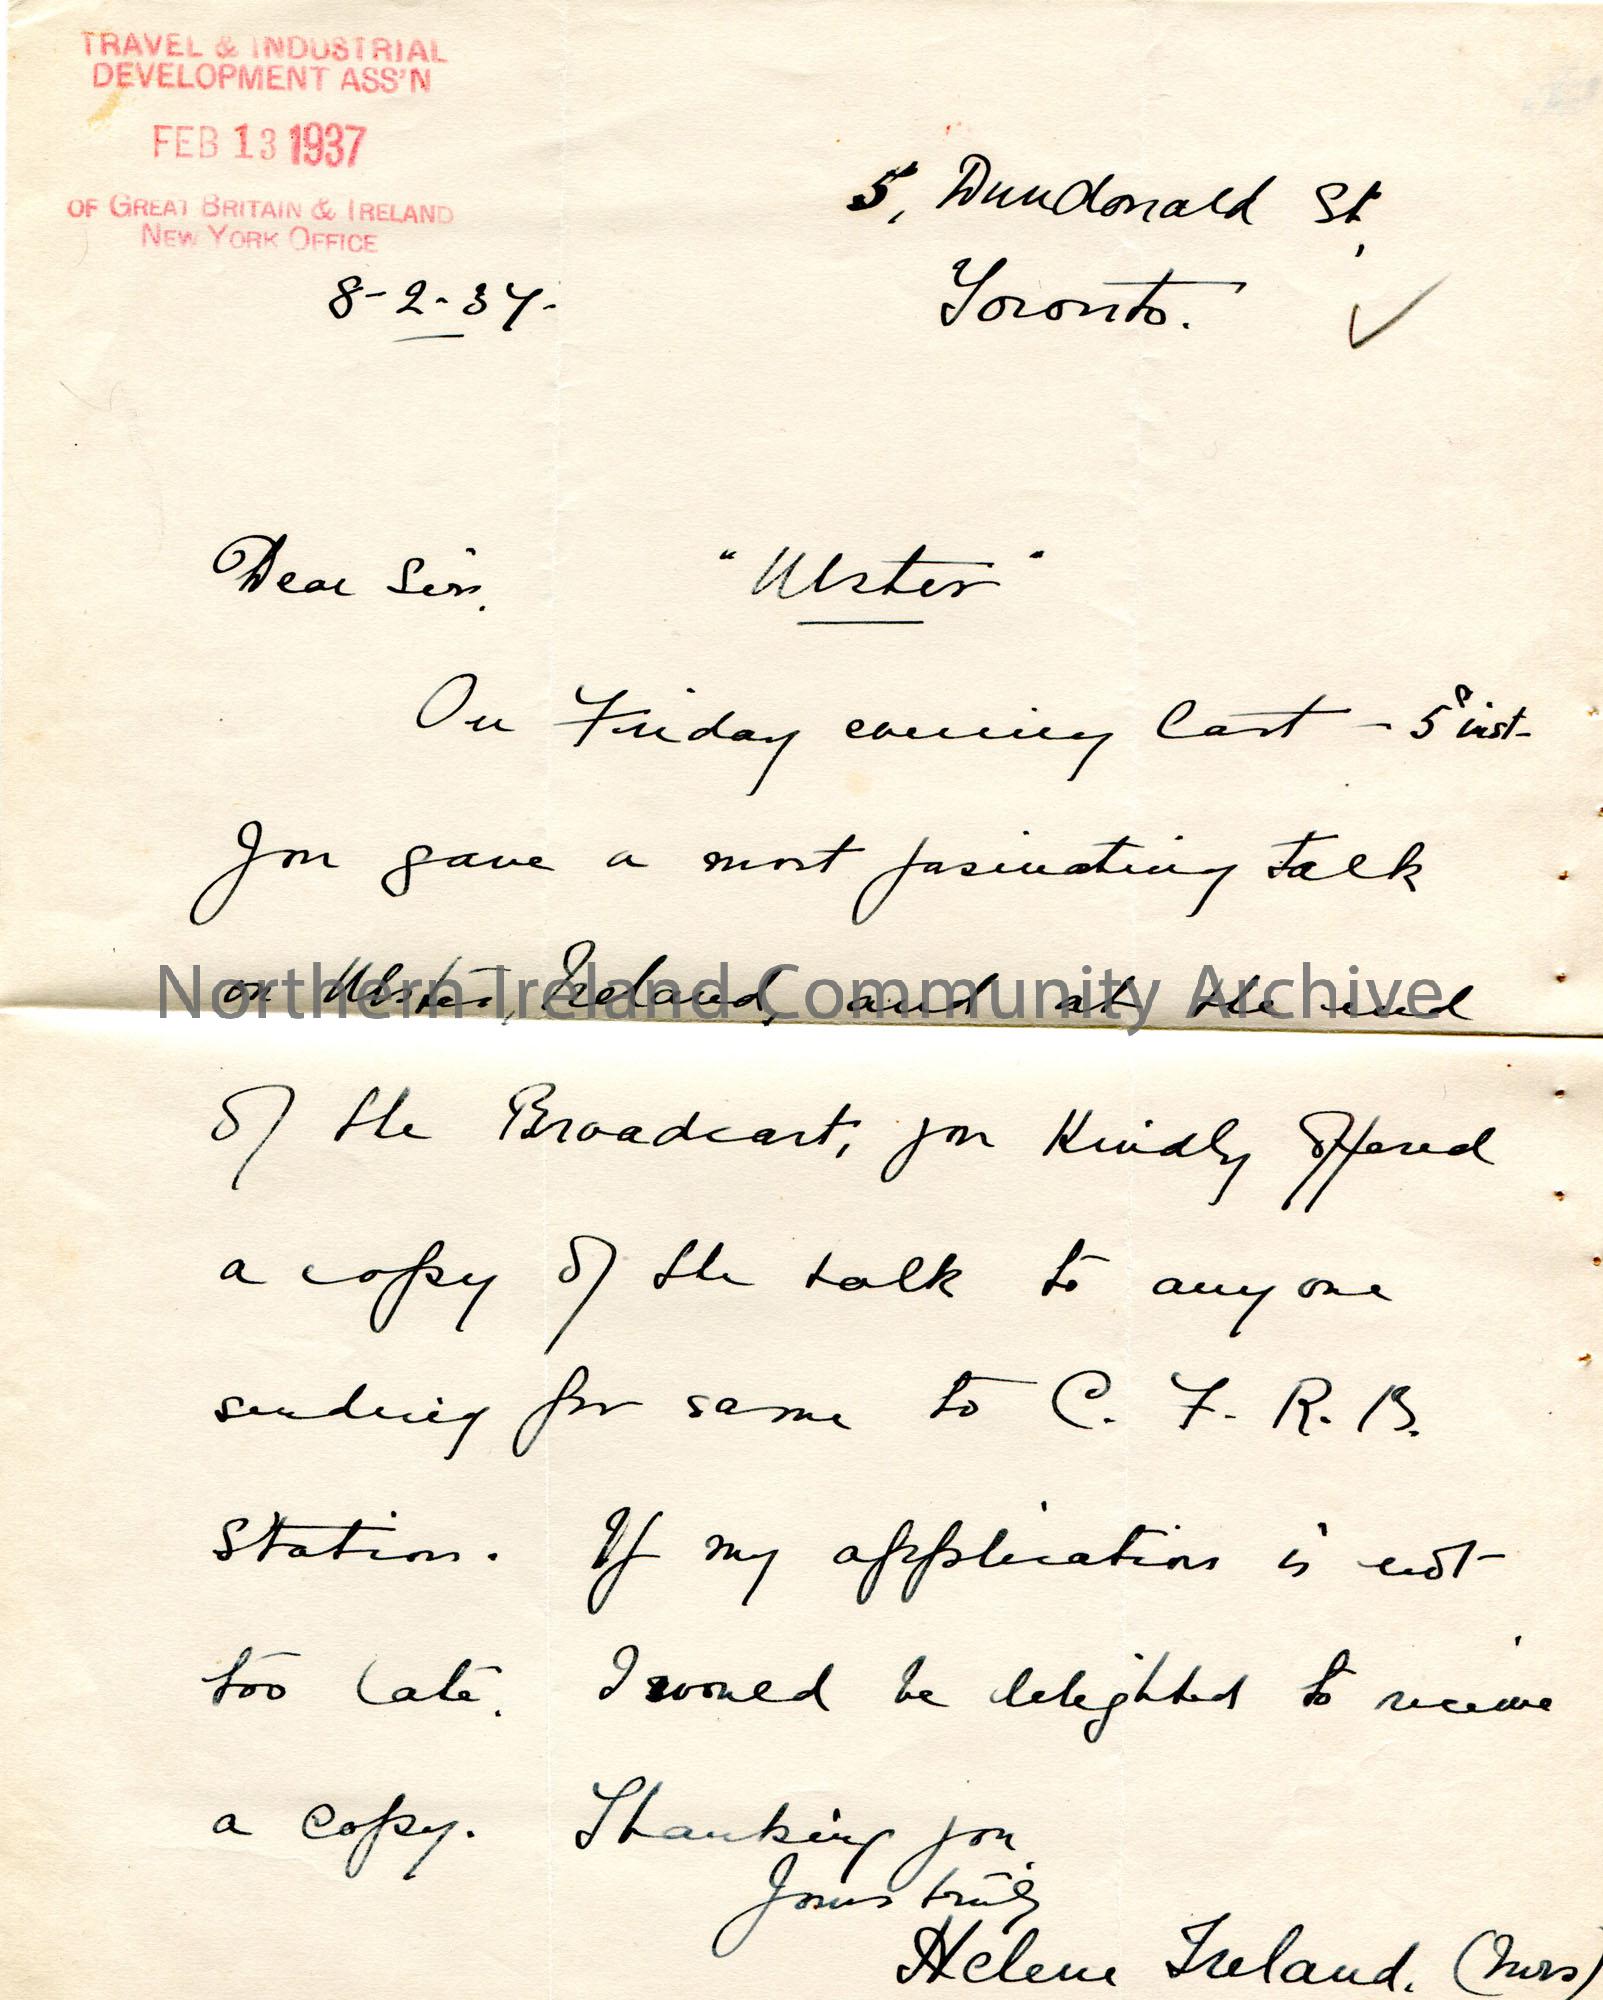 TRAVEL & INDUSTRIAL
DEVELOPMENT ASS'N
FEB 13 1937
OF GREAT BRITAIN & IRELAND
NEW YORK OFFICE
5, Dundonald St,
Toronto.
8-2-37.
Dear Sir, "Ulster"
On Friday evening last - 5th inst-
you gave a most fasinating talk
on Ulster, Ireland, and at the end
Northern Ireland Community Archive
of the Broadcast, you Kindly offered
a copy of the talk to anyone
sending for same to C. F. R. B.
Station. If my application is not
too late, I would be delighted to receive
a copy. Thanking you,
Yours truly
Helene Ireland. (Mrs)